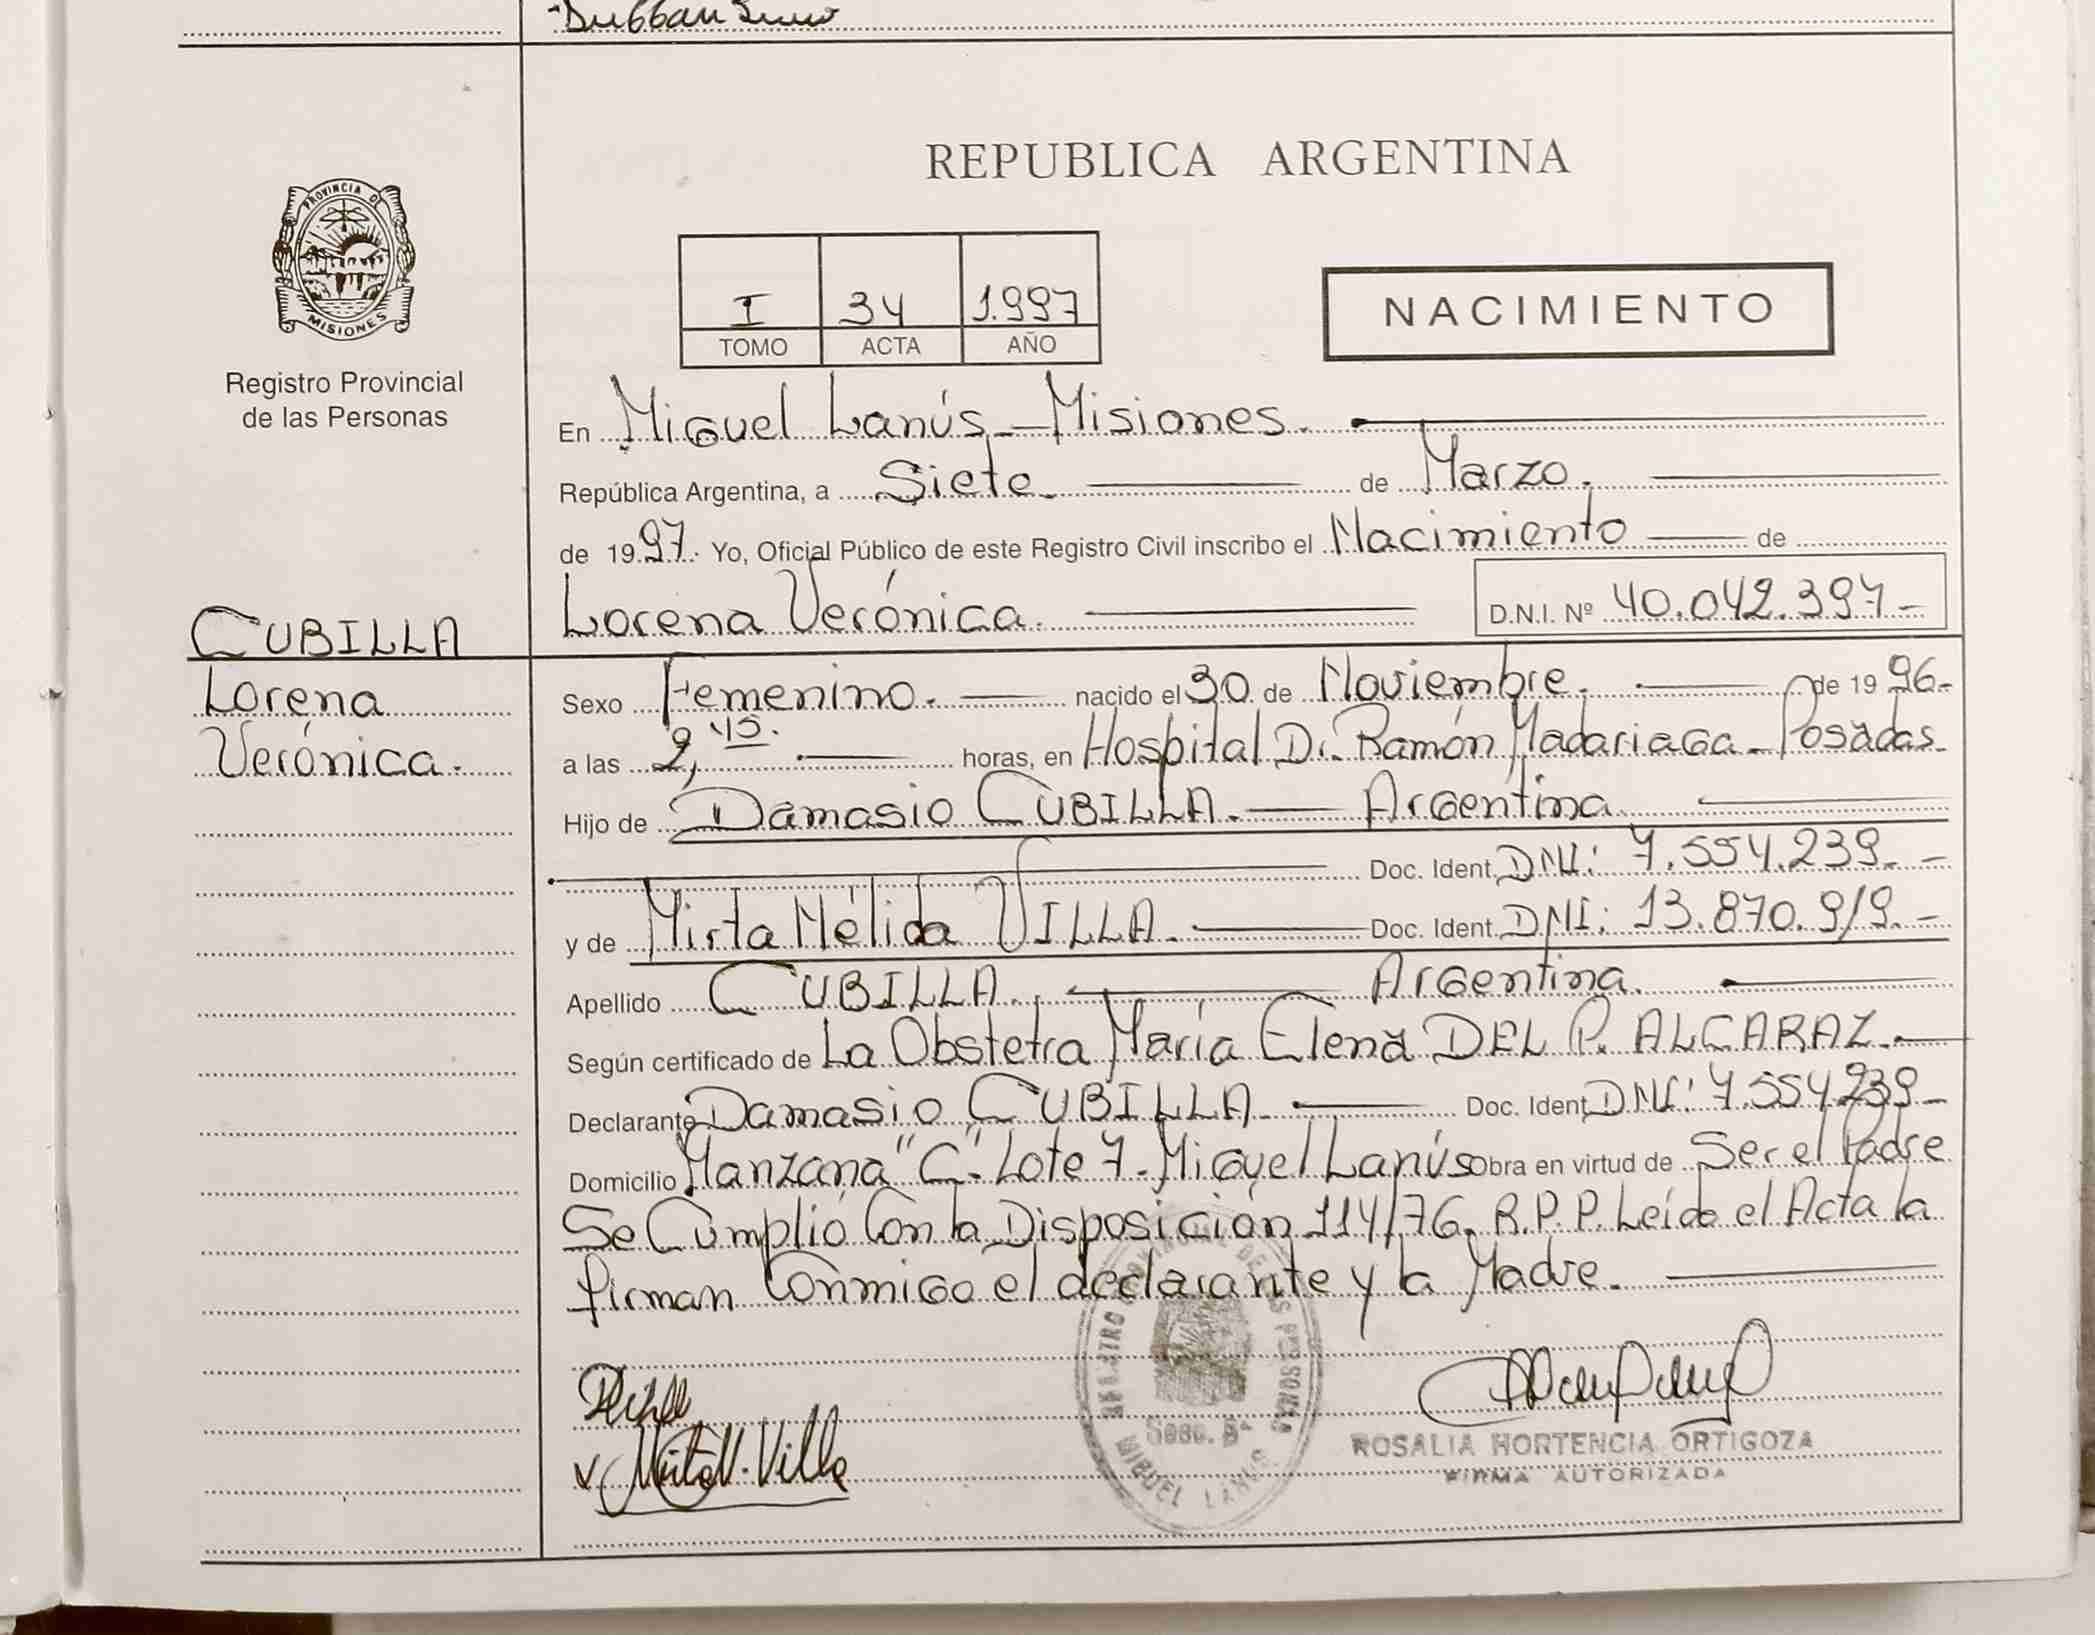 REPUBLICA ARGENTINA
PROVINCIA DE
MISIONES
Registro Provincial
de las Personas
I 34 1.997
TOMO ACTA AÑO
NACIMIENTO
En Miguel Lanús - Misiones.
República Argentina, a Siete. de Marzo.
de 1997. Yo, Oficial Público de este Registro Civil inscribo el Nacimiento de
Lorena Verónica. D.N.I. Nº 40.042.397-
CUBILLA
Lorena
Verónica.
Sexo Femenino. nacido el 30 de Noviembre. de 1996.
a las 2,45. horas, en Hospital Dr. Ramón Madariaga - Posadas.
Hijo de Damasio CUBILLA. Argentina.
Doc. Ident. DNI: 7.554.239.-
y de Mirta Nélida VILLA. Doc. Ident. DNI: 13.870.919.-
Apellido CUBILLA. Argentina.
Según certificado de La Obstetra María Elena DEL P. ALCARAZ.
Declarante Damasio CUBILLA Doc. Ident. DNI: 7.554.239-
Domicilio Manzana "C" Lote 7. Miguel Lanús obra en virtud de Ser el Padre
Se Cumplió Con la Disposición 114/76. R.P.P. Leída el Acta la
firman Conmigo el declarante y la Madre.
REGISTRO PROVINCIAL DE LAS PERSONAS
MIGUEL LANUS
Mirta N. Villa
ROSALIA HORTENCIA ORTIGOZA
FIRMA AUTORIZADA